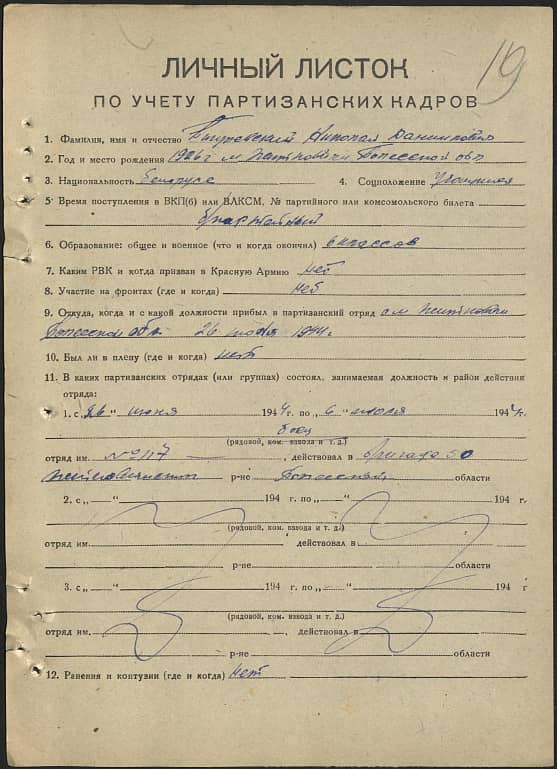 19
ЛИЧНЫЙ ЛИСТОК
ПО УЧЕТУ ПАРТИЗАНСКИХ КАДРОВ
1. Фамилия, имя и отчество Николай
2. Год и место рождения 1926 г м. Полесской обл
3. Национальность Белорус 4. Соцположение Учащийся
5 Время поступления в ВКП(б) или ВЛКСМ, № партийного или комсомольского билета
б/партейный
6. Образование: общее и военное (что и когда окончил) 6 классов
7. Каким РВК и когда призван в Красную Армию нет
8. Участие на фронтах (где и когда) Неб
9. Откуда, когда и с какой должности прибыл в партизанский отряд с м.
Полесской обл. 26 1944г.
10. Был ли в плену (где и когда) нет
11. В каких партизанских отрядах (или группах) состоял, занимаемая должность и район действия
отряда:
1. с „26“ июня 1944 г. по „6“ июля 1944 г.
боец
(рядовой, ком. взвода и т. д.)
отряд им. № 117 , действовал в бригада 50
р-не Полесской области
2. с „ — “ 194 г. по „ — “ 194 г.
(рядовой, ком. взвода и т. д.)
отряд им. действовал в
р-не области
3. с „ — “ 194 г. по „ — “ 194 г
(рядовой, ком. взвода и т. д.)
отряд им. , действовал в
р-не области
12. Ранения и контузии (где и когда) нет